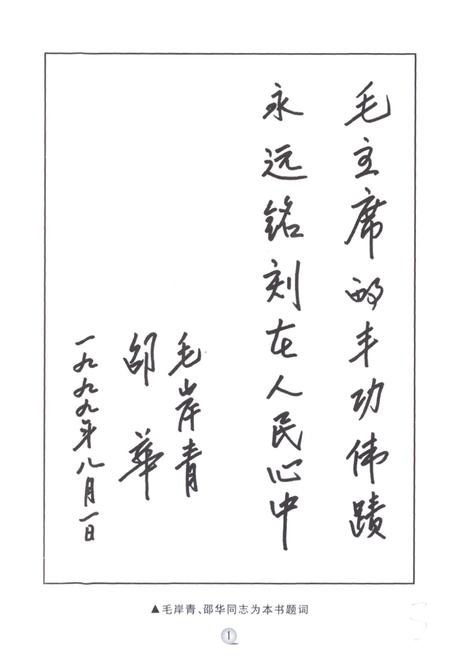 毛主席的丰功伟蹟
永远铭刻在人民心中
毛岸青
邵华
一九九九年八月一日
▲毛岸青、邵华同志为本书题词
1